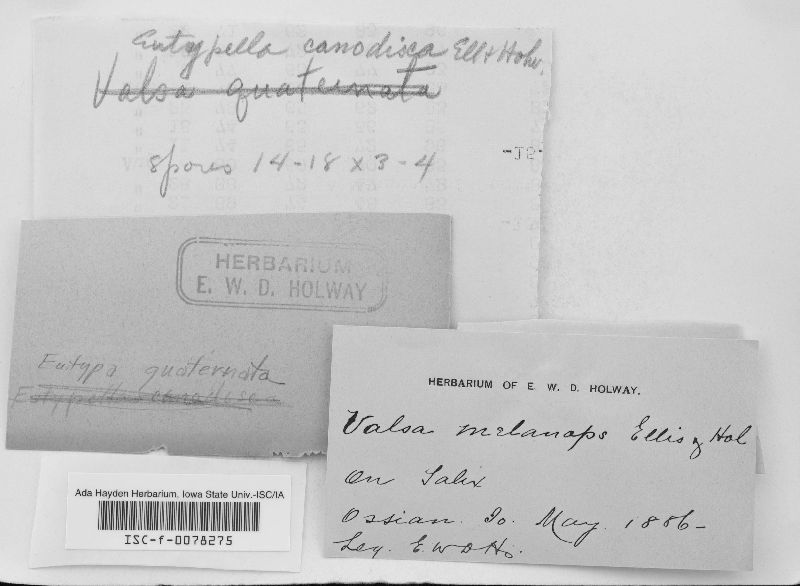 Eutypella canodisca Ell & Holw.
Valsa quaternata
spores 14-18 x 3-4
HERBARIUM
E. W. D. HOLWAY
Eutypa quaternata
Eutypella canodisca
HERBARIUM OF E. W. D. HOLWAY.
Valsa melanops Ellis & Hol
On Salix
Ossian. Io. May. 1886-
Leg. E. W. D. Ho.
Ada Hayden Herbarium, Iowa State Univ.-ISC/IA
ISC-f-0078275